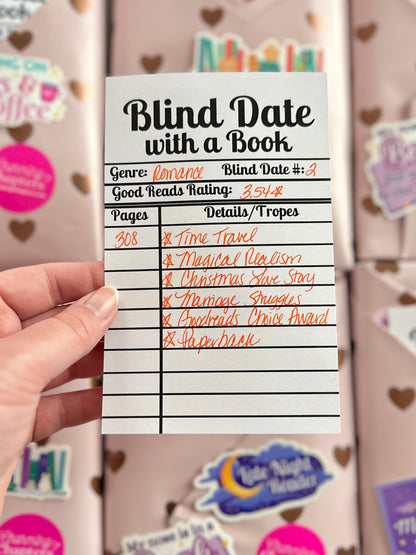 Blind Date
with a Book
Genre: Romance Blind Date #: 2
Good Reads Rating: 3.54☆
Pages Details/Tropes
308 ☆ Time Travel
☆ Magical Realism
☆ Christmas Love Story
☆ Marriage Struggles
☆ Goodreads Choice Award
☆ Paperback
Late Night
Reader